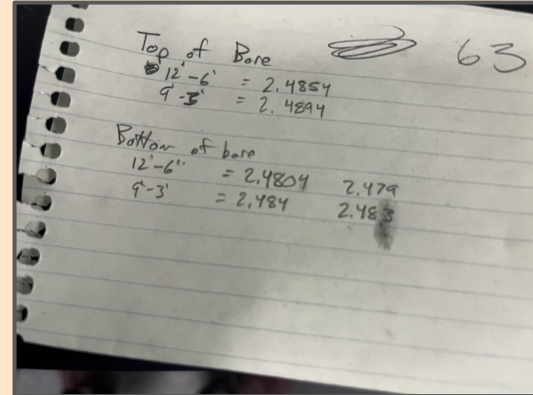 63
Top of Bore
12'-6' = 2.4854
9'-3' = 2.4894
Bottom of bore
12'-6" = 2.4804 2.479
9'-3' = 2.484 2.483